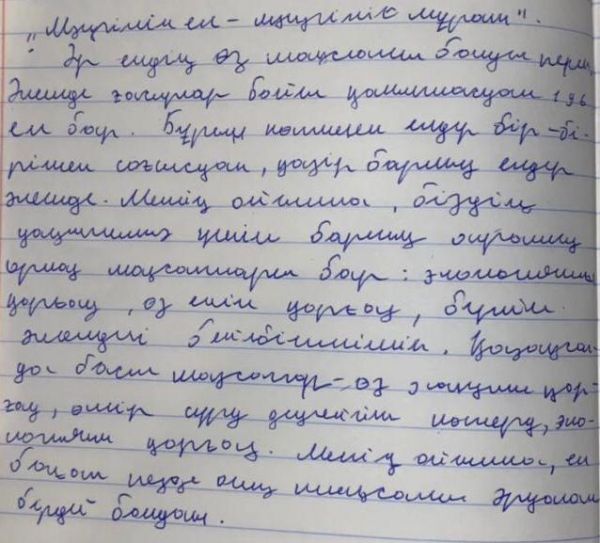 „Мәңгілік ел – мәңгілік мұраты".
Әр елдің өз мақсаты болуы керек.
Әлемде заңдар бойы 196
ел бар. Бұрын көптеген елдер бір-бі-
рімен соғысқан, қазір барлық елдер
әлемде. Менің ойымша, біздің
үшін барлық
ортақ мақсаттары бар: экологияны
қорғау, өз елін қорғау, бүкіл
әлемдегі бейбітшілік. Қазақстан-
да басты мақсаттар – өз халқын қор-
ғау, өмір сүру деңгейін көтеру, эко-
логияны қорғау. Менің ойымша, ел
болып кезде оның мақсаты әрқашан
бірдей болады.